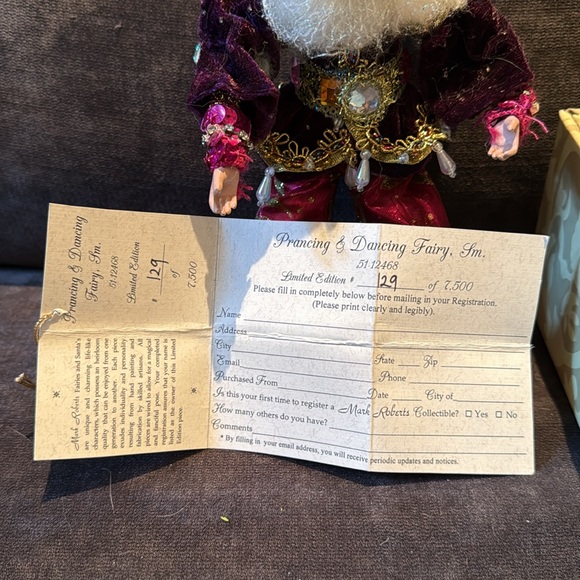 Prancing & Dancing
Fairy, Sm.
51:12468
Limited Edition
# 129 of
7,500
Mark Roberts Fairies and Santa's
are unique and charming life-like
characters, which possess an heirloom
quality that can be enjoyed from one
generation to another. Each piece
exudes individuality and personality
resulting from hand painting and
fabrication by skilled artisans. All
pieces are wired to allow for a magical
and fanciful pose. Your completed
registration assures that your name is
listed as the owner of this Limited
Edition piece.
Prancing & Dancing Fairy, Sm.
51:12468
Limited Edition # 129 of 7,500
Please fill in completely below before mailing in your Registration.
(Please print clearly and legibly).
Name
Address
City State Zip
Email Phone
Purchased From Date City of
Is this your first time to register a Mark Roberts Collectible? □ Yes □ No
How many others do you have?
Comments
* By filling in your email address, you will receive periodic updates and notices.